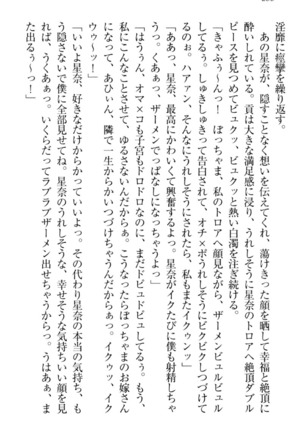 淫靡に痙攣を繰り返す。
　あの星奈が、隠すことなく想いを伝えてくれ、蕩けきった顔を晒して幸福と絶頂に
酔いしれている。貢は大きな満足感に浸り、うれしそうに星奈のトロアへ絶頂ダブル
ピースを見つめてビュクッ、ビュクッと熱い白濁を注ぎ続ける。
「きゃふぅんっ！　ぼっちゃま、私のトロアヘ顔見ながら、ザーメンビュルビュル
してるぅ。しゅきしゅきって告白されて、オチ×ポうれしそうにビクビクしつづけて
るのぉ。ハアァン、そんなにうれしそうにされたら、私もまたイクゥンッ」
「ああっ、星奈、最高にかわいくて興奮するよっ。星奈がイクたびに僕も射精しちゃ
うっ。くあぁっ、ザーメンでっぱなしになっちゃうよっ」
「はううん、オマ×コも子宮もドロドロなのに、まだドビュドビュしてるぅ。もう、
私にこんなことさせて、ゆるさないんだからぁ。こうなったらぼっちゃまのお嫁さん
になって、あひぃん、隣で一生からかいつづけちゃうんだからぁっ。イクゥッ、イク
ウゥ～ッ！」
「いいよ星奈、好きなだけからかっていいよっ。その代わり星奈の本当の気持ち、も
う隠さないで僕に全部見せてね。星奈のうれしそうな、幸せそうな気持ちいい顔を見
れば、うくあぁっ。いくらだってラブラブザーメン出せちゃうからっ。うはあぁ、ま
た出るぅ～っ！」